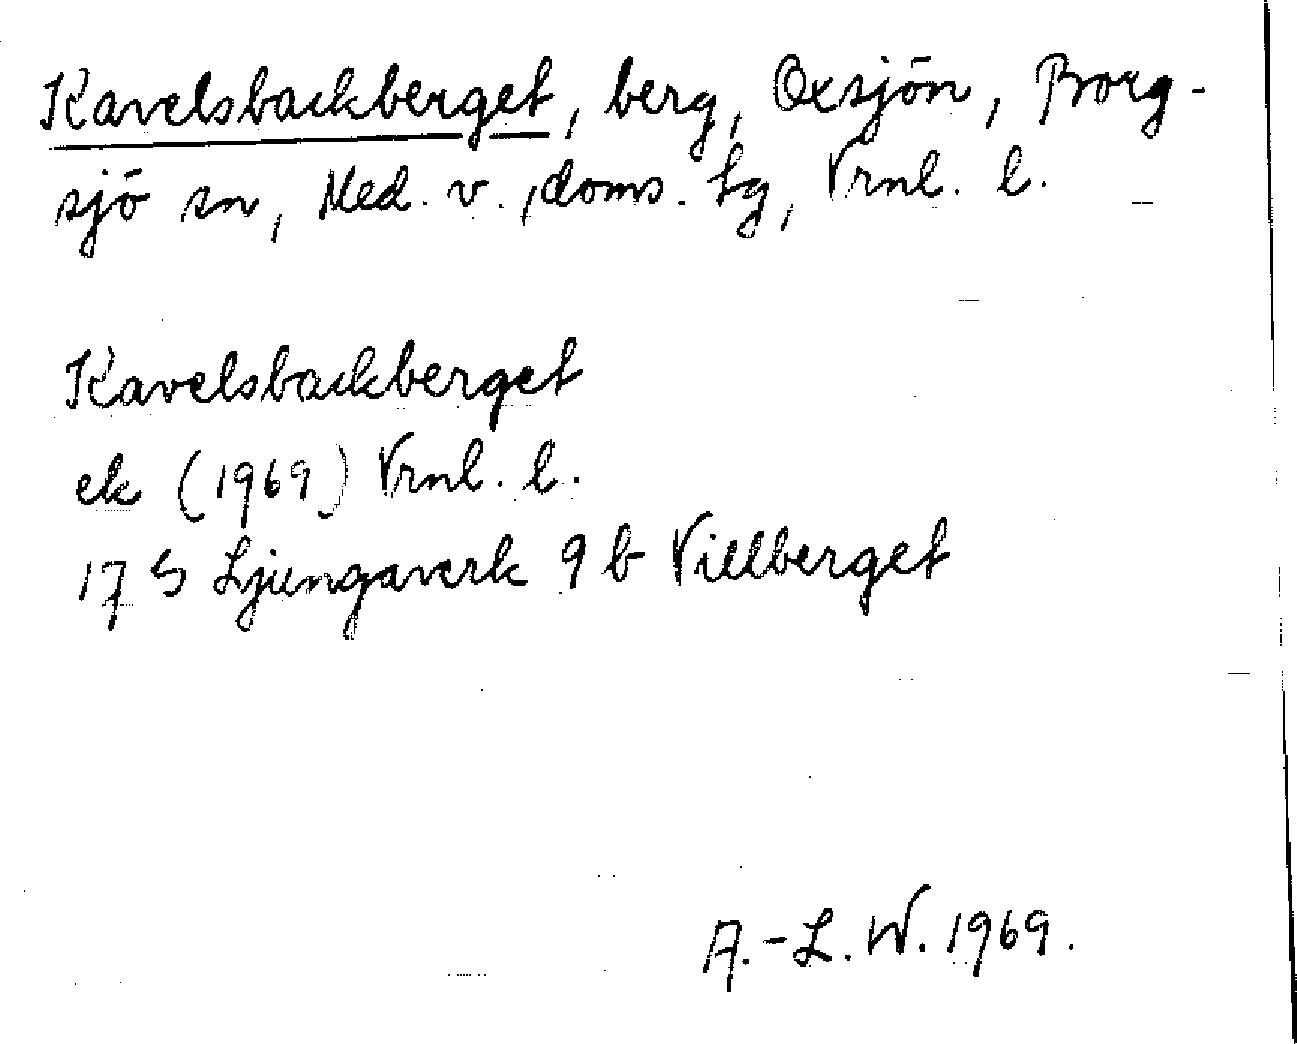 Kavelsbackberget, berg, Oxsjön, Borg-
sjö sn, Med. v. doms. lg, Vrnl. l.
Kavelsbackberget
ek (1969) Vrnl. l.
17 G Ljungaverk 9 b Villberget
A.-L. W. 1969.